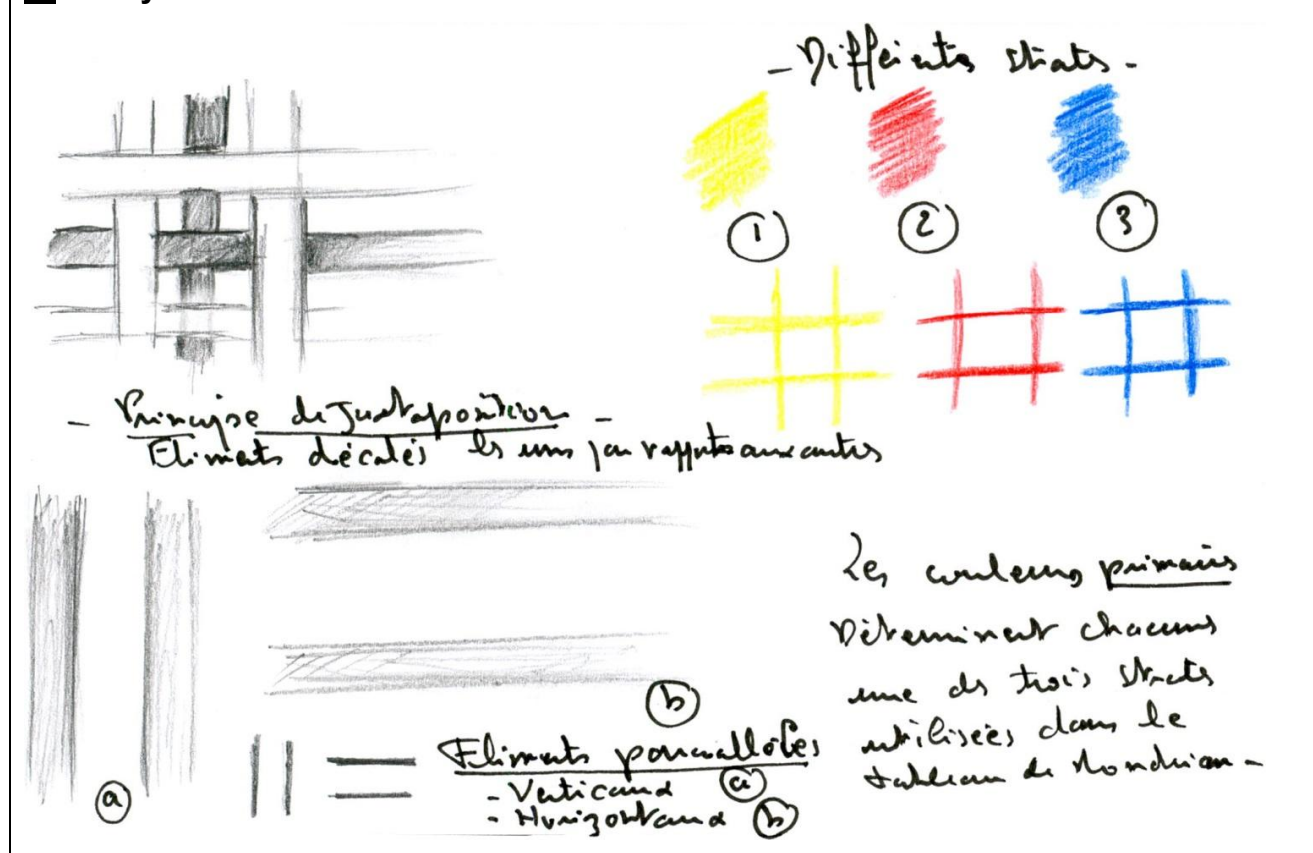 - Différents strats -
1
2
3
- Principe de Juxtaposition -
Eléments décalés les uns par rapports aux autres
Les couleurs primaires
Déterminent chacunes
une des trois strats
utilisées dans le
tableau de Mondrian -
b
Eléments parrallèles
- Verticaux a
- Horizontaux b
a